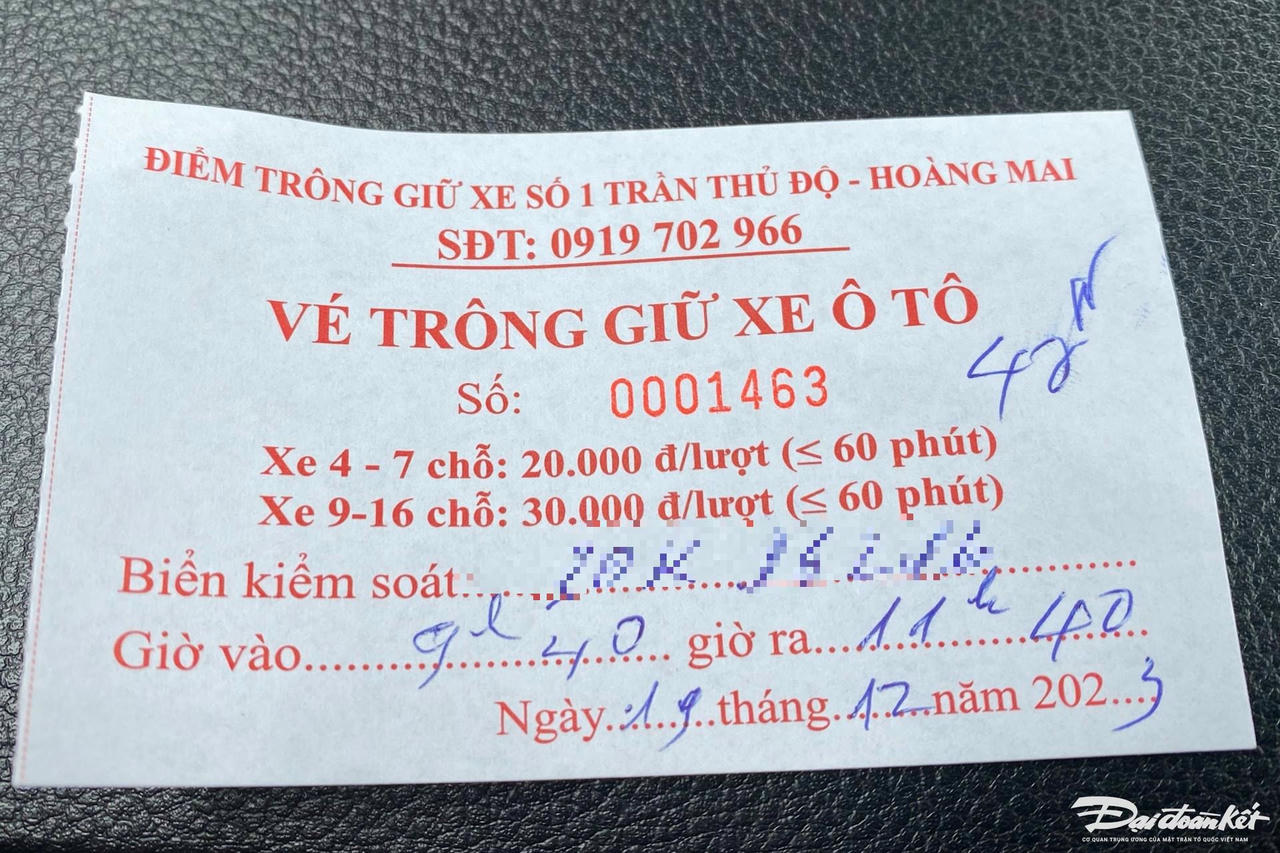 ĐIỂM TRÔNG GIỮ XE SỐ 1 TRẦN THỦ ĐỘ - HOÀNG MAI
SĐT: 0919 702 966
VÉ TRÔNG GIỮ XE Ô TÔ
Số: 0001463
Xe 4 - 7 chỗ: 20.000 đ/lượt (≤ 60 phút)
Xe 9-16 chỗ: 30.000 đ/lượt (≤ 60 phút)
Biển kiểm soát:
Giờ vào 9h 40 giờ ra 11h 40
Ngày 19 tháng 12 năm 2023
Đại đoàn kết
CƠ QUAN TRUNG ƯƠNG CỦA MẶT TRẬN TỔ QUỐC VIỆT NAM